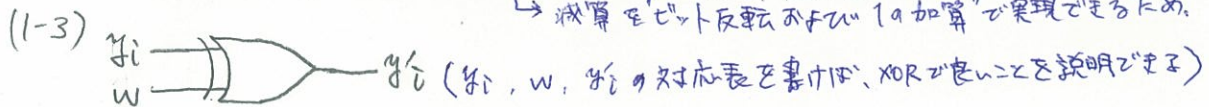 ↳ 減算をビット反転および1の加算で実現できるため。
(1-3) yi
w
y'i (yi, w, y'iの対応表を書けば、XORで良いことを説明できる)